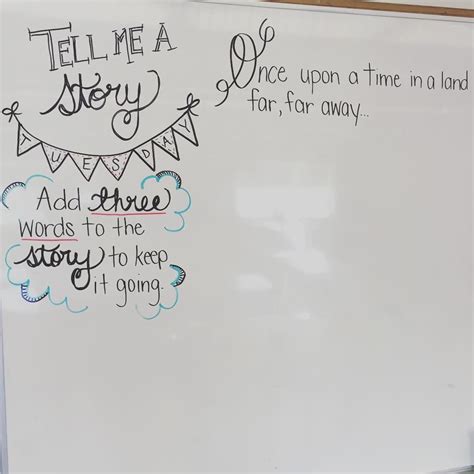 TELL ME A
Story
TUESDAY
Add three
words to the
story to keep
it going.
Once upon a time in a land
far, far away...